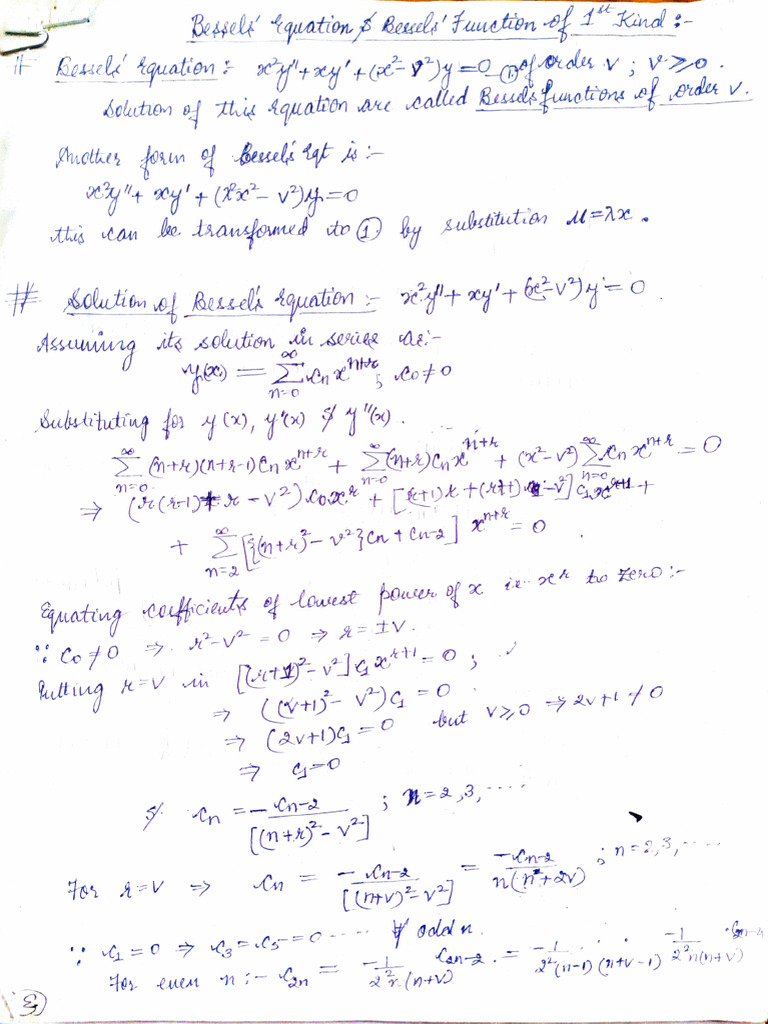 Bessels' Equation & Bessels' Function of 1st Kind :-
# Bessels' Equation :- x²y'' + xy' + (x² - v²)y = 0 ① of order v ; v ≥ 0 .
Solution of this equation are called Bessel's functions of order v.
Another form of Bessel's Eqt is :-
x²y'' + xy' + (λ²x² - v²)y = 0
this can be transformed to ① by substitution u = λx .
# Solution of Bessel's Equation :- x²y'' + xy' + (x² - v²)y = 0
Assuming its solution in series as :-
y(x) = ∑_{n=0}^{∞} cₙ x^{n+r} ; c₀ ≠ 0
Substituting for y(x), y'(x) & y''(x) .
∑_{n=0}^{∞} (n+r)(n+r-1) cₙ x^{n+r} + ∑_{n=0}^{∞} (n+r) cₙ x^{n+r} + (x² - v²) ∑_{n=0}^{∞} cₙ x^{n+r} = 0
⇒ (r(r-1) + r - v²) c₀ x^r + [(r+1) r + (r+1) - v²] c₁ x^{r+1} +
+ ∑_{n=2}^{∞} [{(n+r)² - v²} cₙ + cₙ₋₂] x^{n+r} = 0 .
Equating coefficients of lowest power of x i.e. x^r to zero :-
∵ c₀ ≠ 0 ⇒ r² - v² = 0 ⇒ r = ±v .
Putting r = v in [(r+1)² - v²] c₁ x^{r+1} = 0 ;
⇒ ((v+1)² - v²) c₁ = 0
⇒ (2v+1) c₁ = 0 but v ≥ 0 ⇒ 2v+1 ≠ 0
⇒ c₁ = 0
& cₙ = -cₙ₋₂ / [(n+r)² - v²] ; n = 2, 3, ....
For r = v ⇒ cₙ = -cₙ₋₂ / [(n+v)² - v²] = -cₙ₋₂ / n(n² + 2v) ; n = 2, 3, ....
∵ c₁ = 0 ⇒ c₃ = c₅ = 0 .... ∀ odd n .
For even n :- c₂ₙ = -1 / 2²n(n+v) c₂ₙ₋₂ = -1 / 2²(n-1)(n+v-1) . -1 / 2²n(n+v) . c₂ₙ₋₄